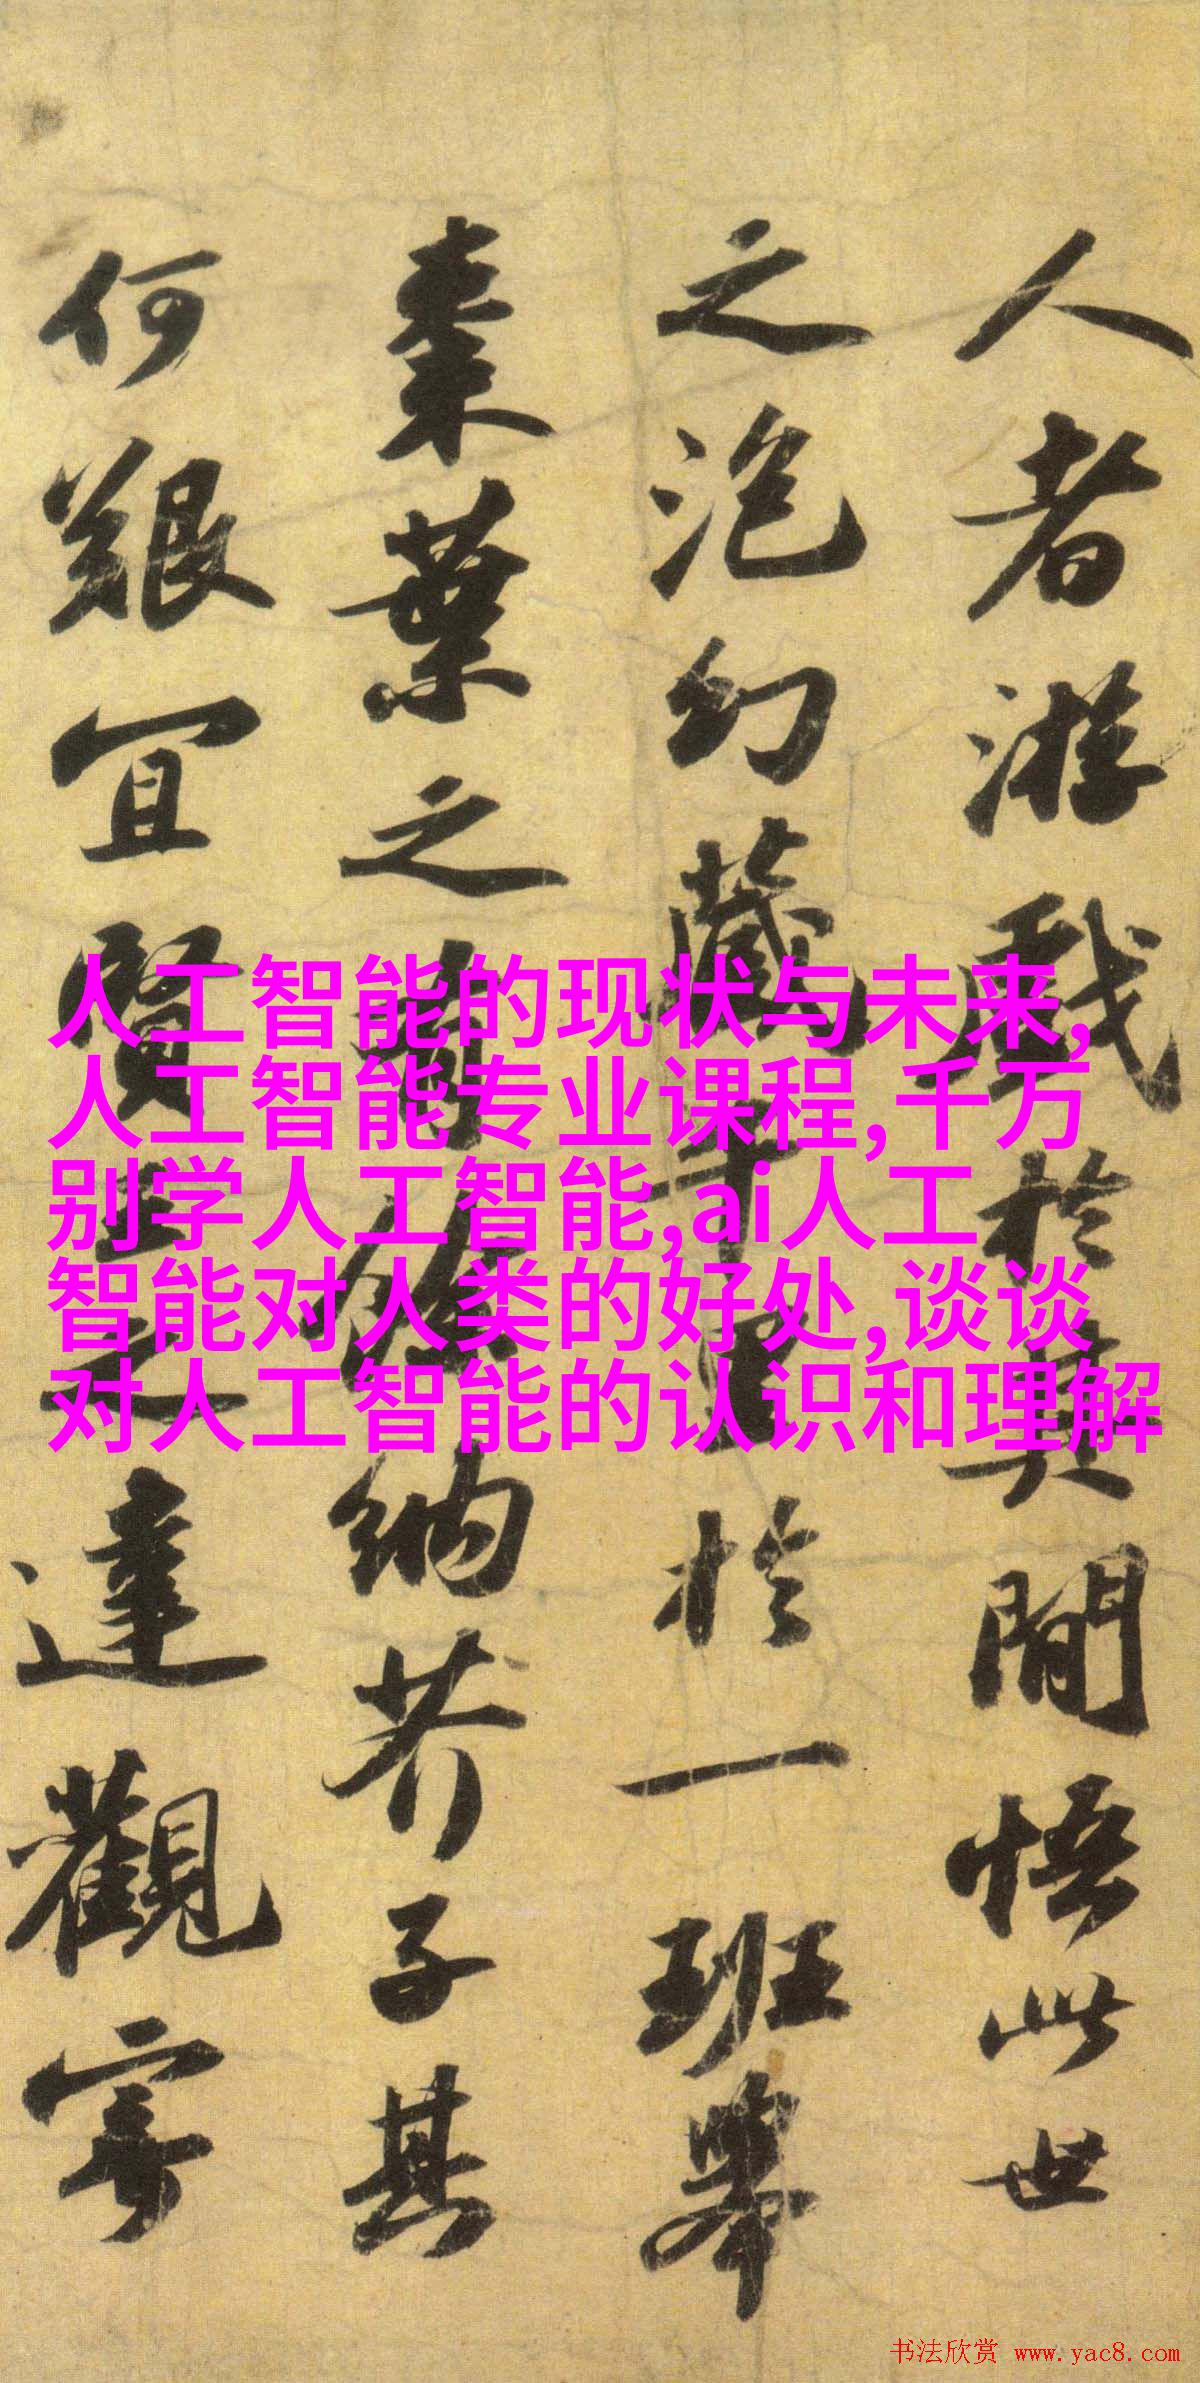 人者游戲於其間悟此世
之泡幻藏千里於一班舉
棗葉之有餘納芥子其
何艱宜賢王之達觀寄
人工智能的现状与未来,
人工智能专业课程,千万
别学人工智能,ai人工
智能对人类的好处,谈谈
对人工智能的认识和理解
书法欣赏 www.yac8.com